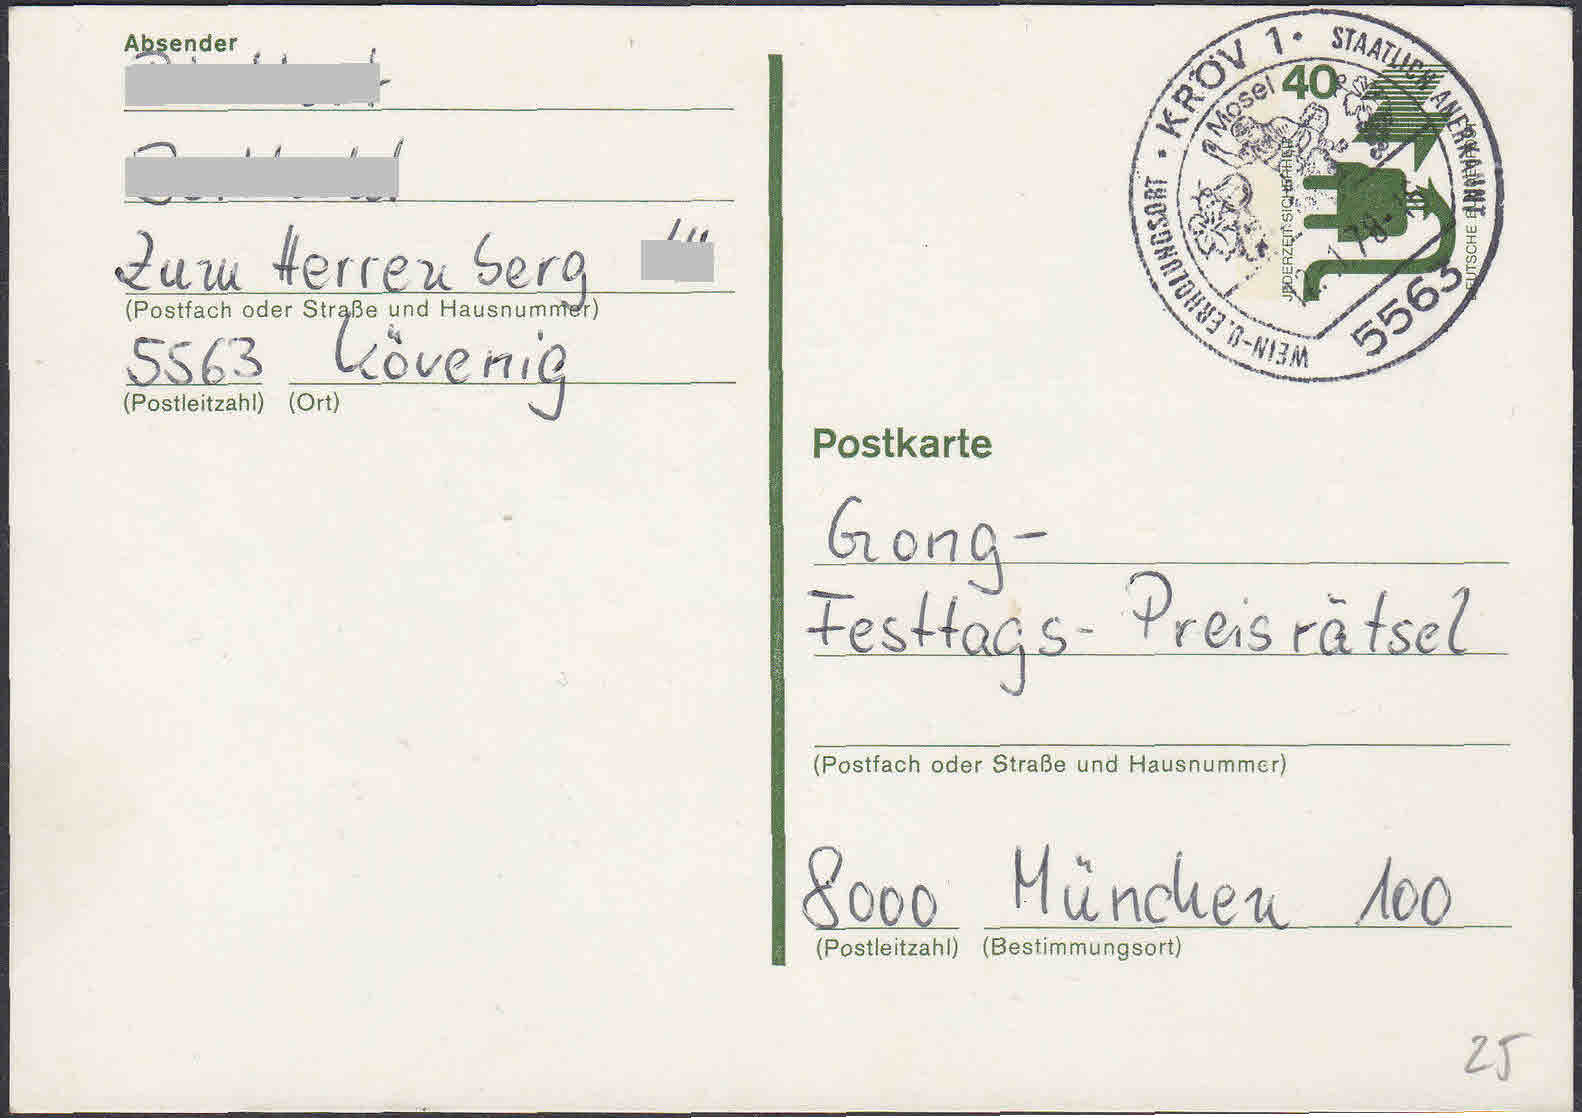 Absender
Zum Herrenberg
(Postfach oder Straße und Hausnummer)
5563 Kövenig
(Postleitzahl) (Ort)
KRÖV 1 · STAATLICH ANERKANNT
WEIN-U. ERHOLUNGSORT ·
5563
Mosel
40
JEDERZEIT SICHERHEIT
78-
Postkarte
Gong-
Festtags-Preisrätsel
(Postfach oder Straße und Hausnummer)
8000 München 100
(Postleitzahl) (Bestimmungsort)
25